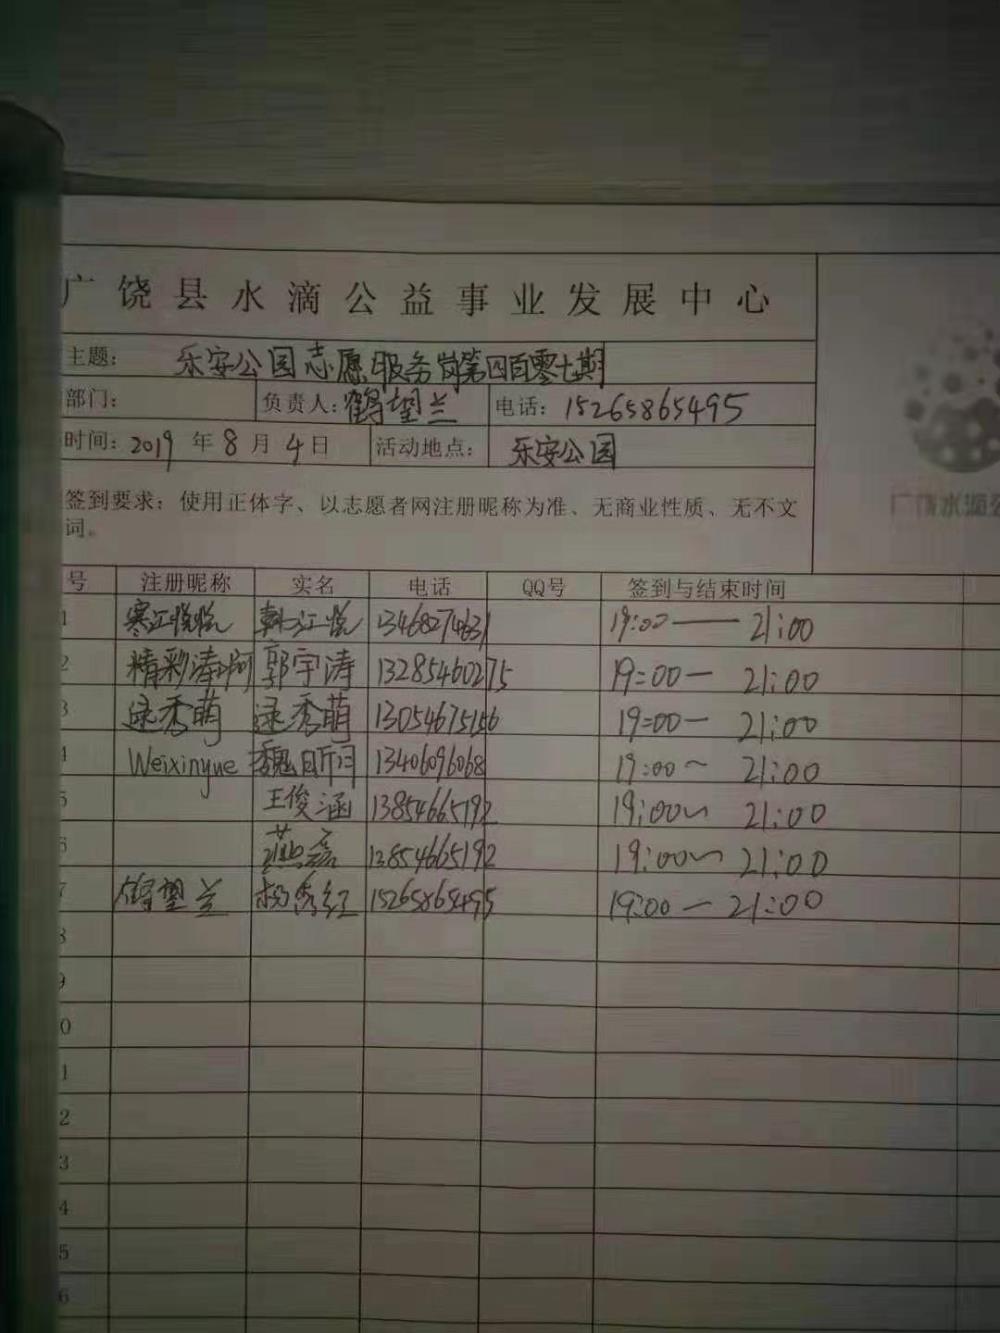 广饶县水滴公益事业发展中心
主题: 乐安公园志愿服务岗第四百零七期
部门: 负责人: 鹤望兰 电话: 15265865495
时间: 2019年8月4日 活动地点: 乐安公园
签到要求: 使用正体字、以志愿者网注册昵称为准、无商业性质、无不文
词。
号 注册昵称 实名 电话 QQ号 签到与结束时间
1 寒江悦悦 韩江悦 13468274631 19:00—21:00
2 精彩涛啊 郭宇涛 13285460275 19:00—21:00
3 逯秀萌 逯秀萌 13054675156 19:00—21:00
4 Weixinyue 魏 13406096068 19:00~21:00
5 王俊涵 13854665192 19:00~21:00
6 燕磊 13854665192 19:00~21:00
7 鹤望兰 杨秀红 15265865495 19:00—21:00
8
9
0
1
2
3
4
5
6
广饶水滴公